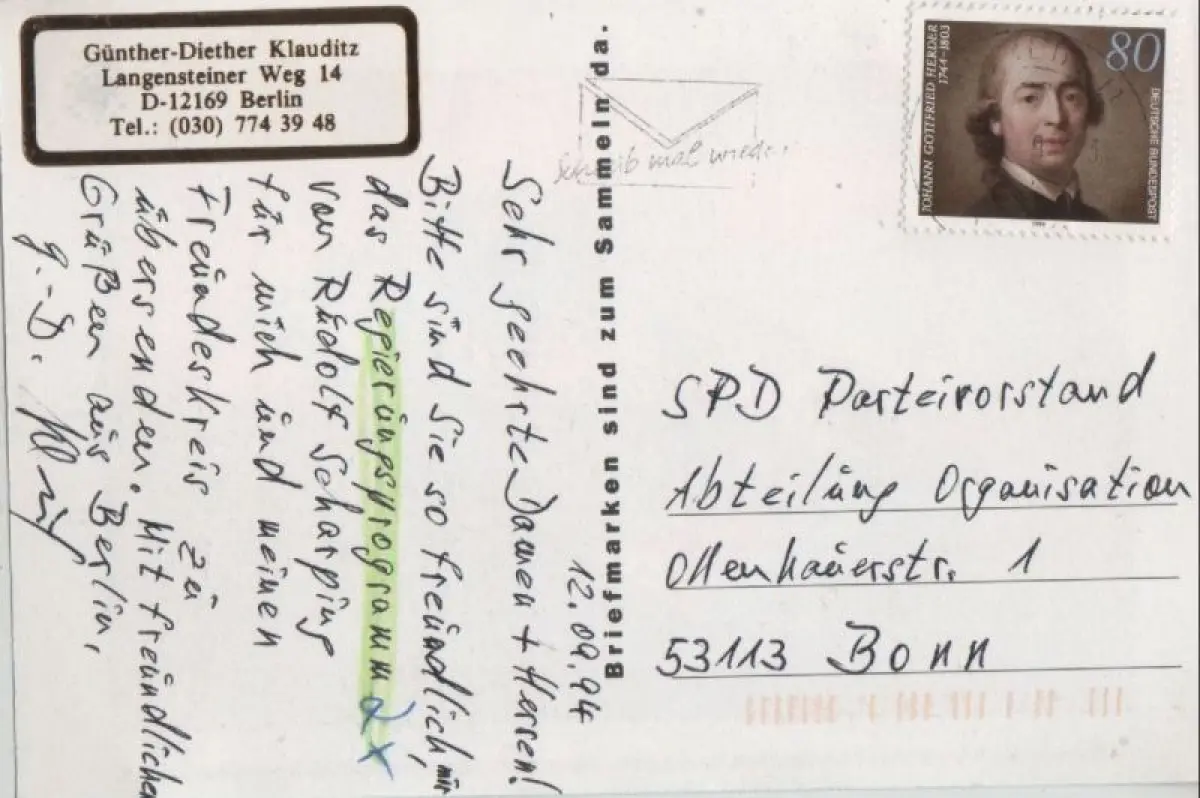 Günther-Diether Klauditz
Langensteiner Weg 14
D-12169 Berlin
Tel.: (030) 774 39 48
12.09.94
Sehr geehrte Damen + Herren!
Bitte sind Sie so freundlich, mir
das Regierungsprogramm 2x
von Rudolf Scharping
für mich und meinen
Freundeskreis zu
übersenden. Mit freundlichen
Grüßen aus Berlin,
G.-D.
Briefmarken sind zum Sammeln da.
Schreib mal wieder
JOHANN GOTTFRIED HERDER
1744-1803
80
DEUTSCHE BUNDESPOST
SPD Parteivorstand
Abteilung Organisation
Ollenhauerstr. 1
53113 Bonn